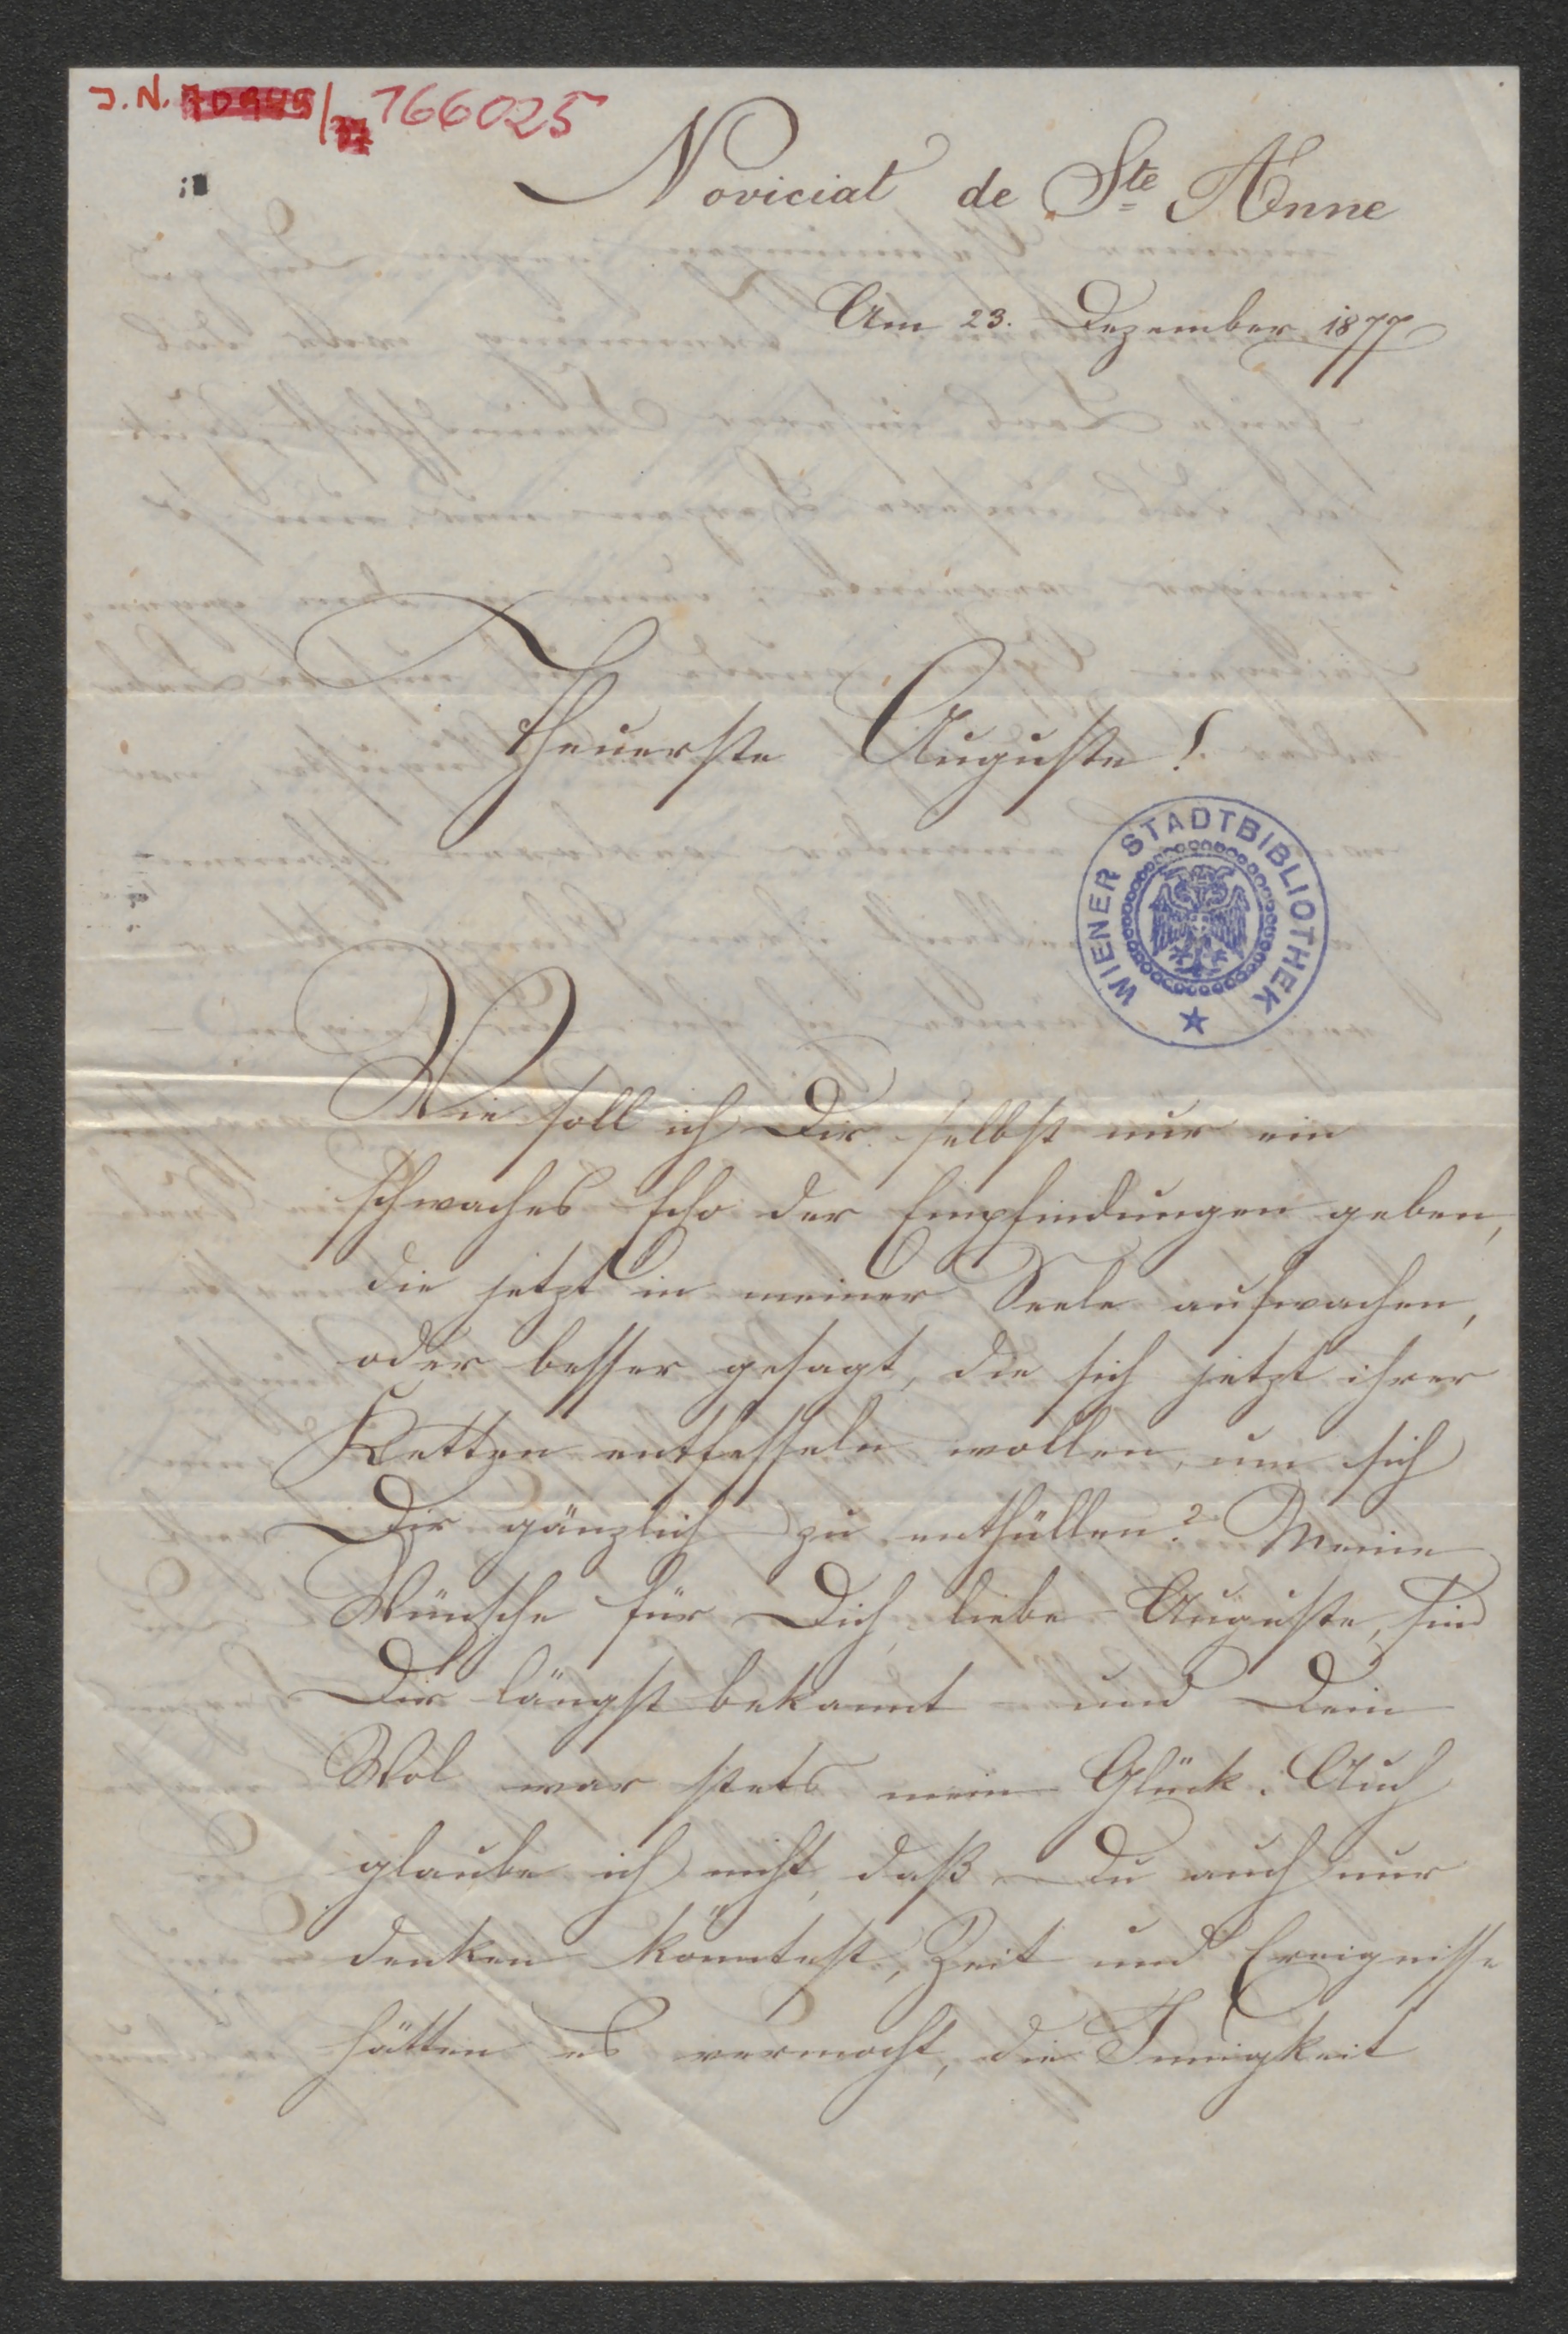 J. N. 166025
Noviciat de Ste Anne
Am 23. Dezember 1877
Theuerste Auguste!
WIENER STADTBIBLIOTHEK
Wie soll ich Dir selbst nur ein
schwaches Echo der Empfindungen geben,
die jetzt in meiner Seele aufwachen,
oder besser gesagt, die sich jetzt ihrer
Ketten entfesseln wollen, um sich
Dir gänzlich zu enthüllen? Meine
Wünsche für Dich, liebe Auguste, sind
Dir längst bekannt und Dein
Wol war stets mein Glück. Auch
glaube ich nicht, daß Du auch nur
denken könntest, Zeit und Ereignisse
hätten es vermocht, die Innigkeit